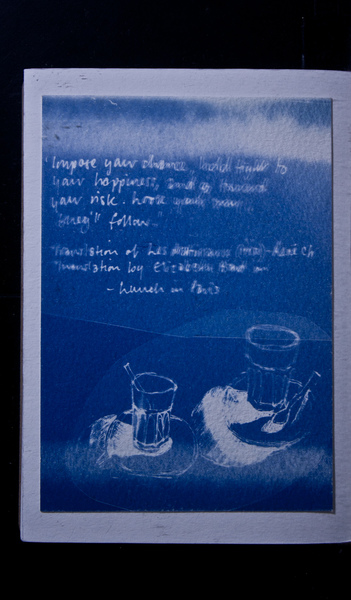 "Impose your chance, hold tight to
your happiness, and go toward
your risk. Look your way
they'll follow."
Translation of Les Matinaux - René Ch
Translation by Elizabeth
- Lunch in Paris